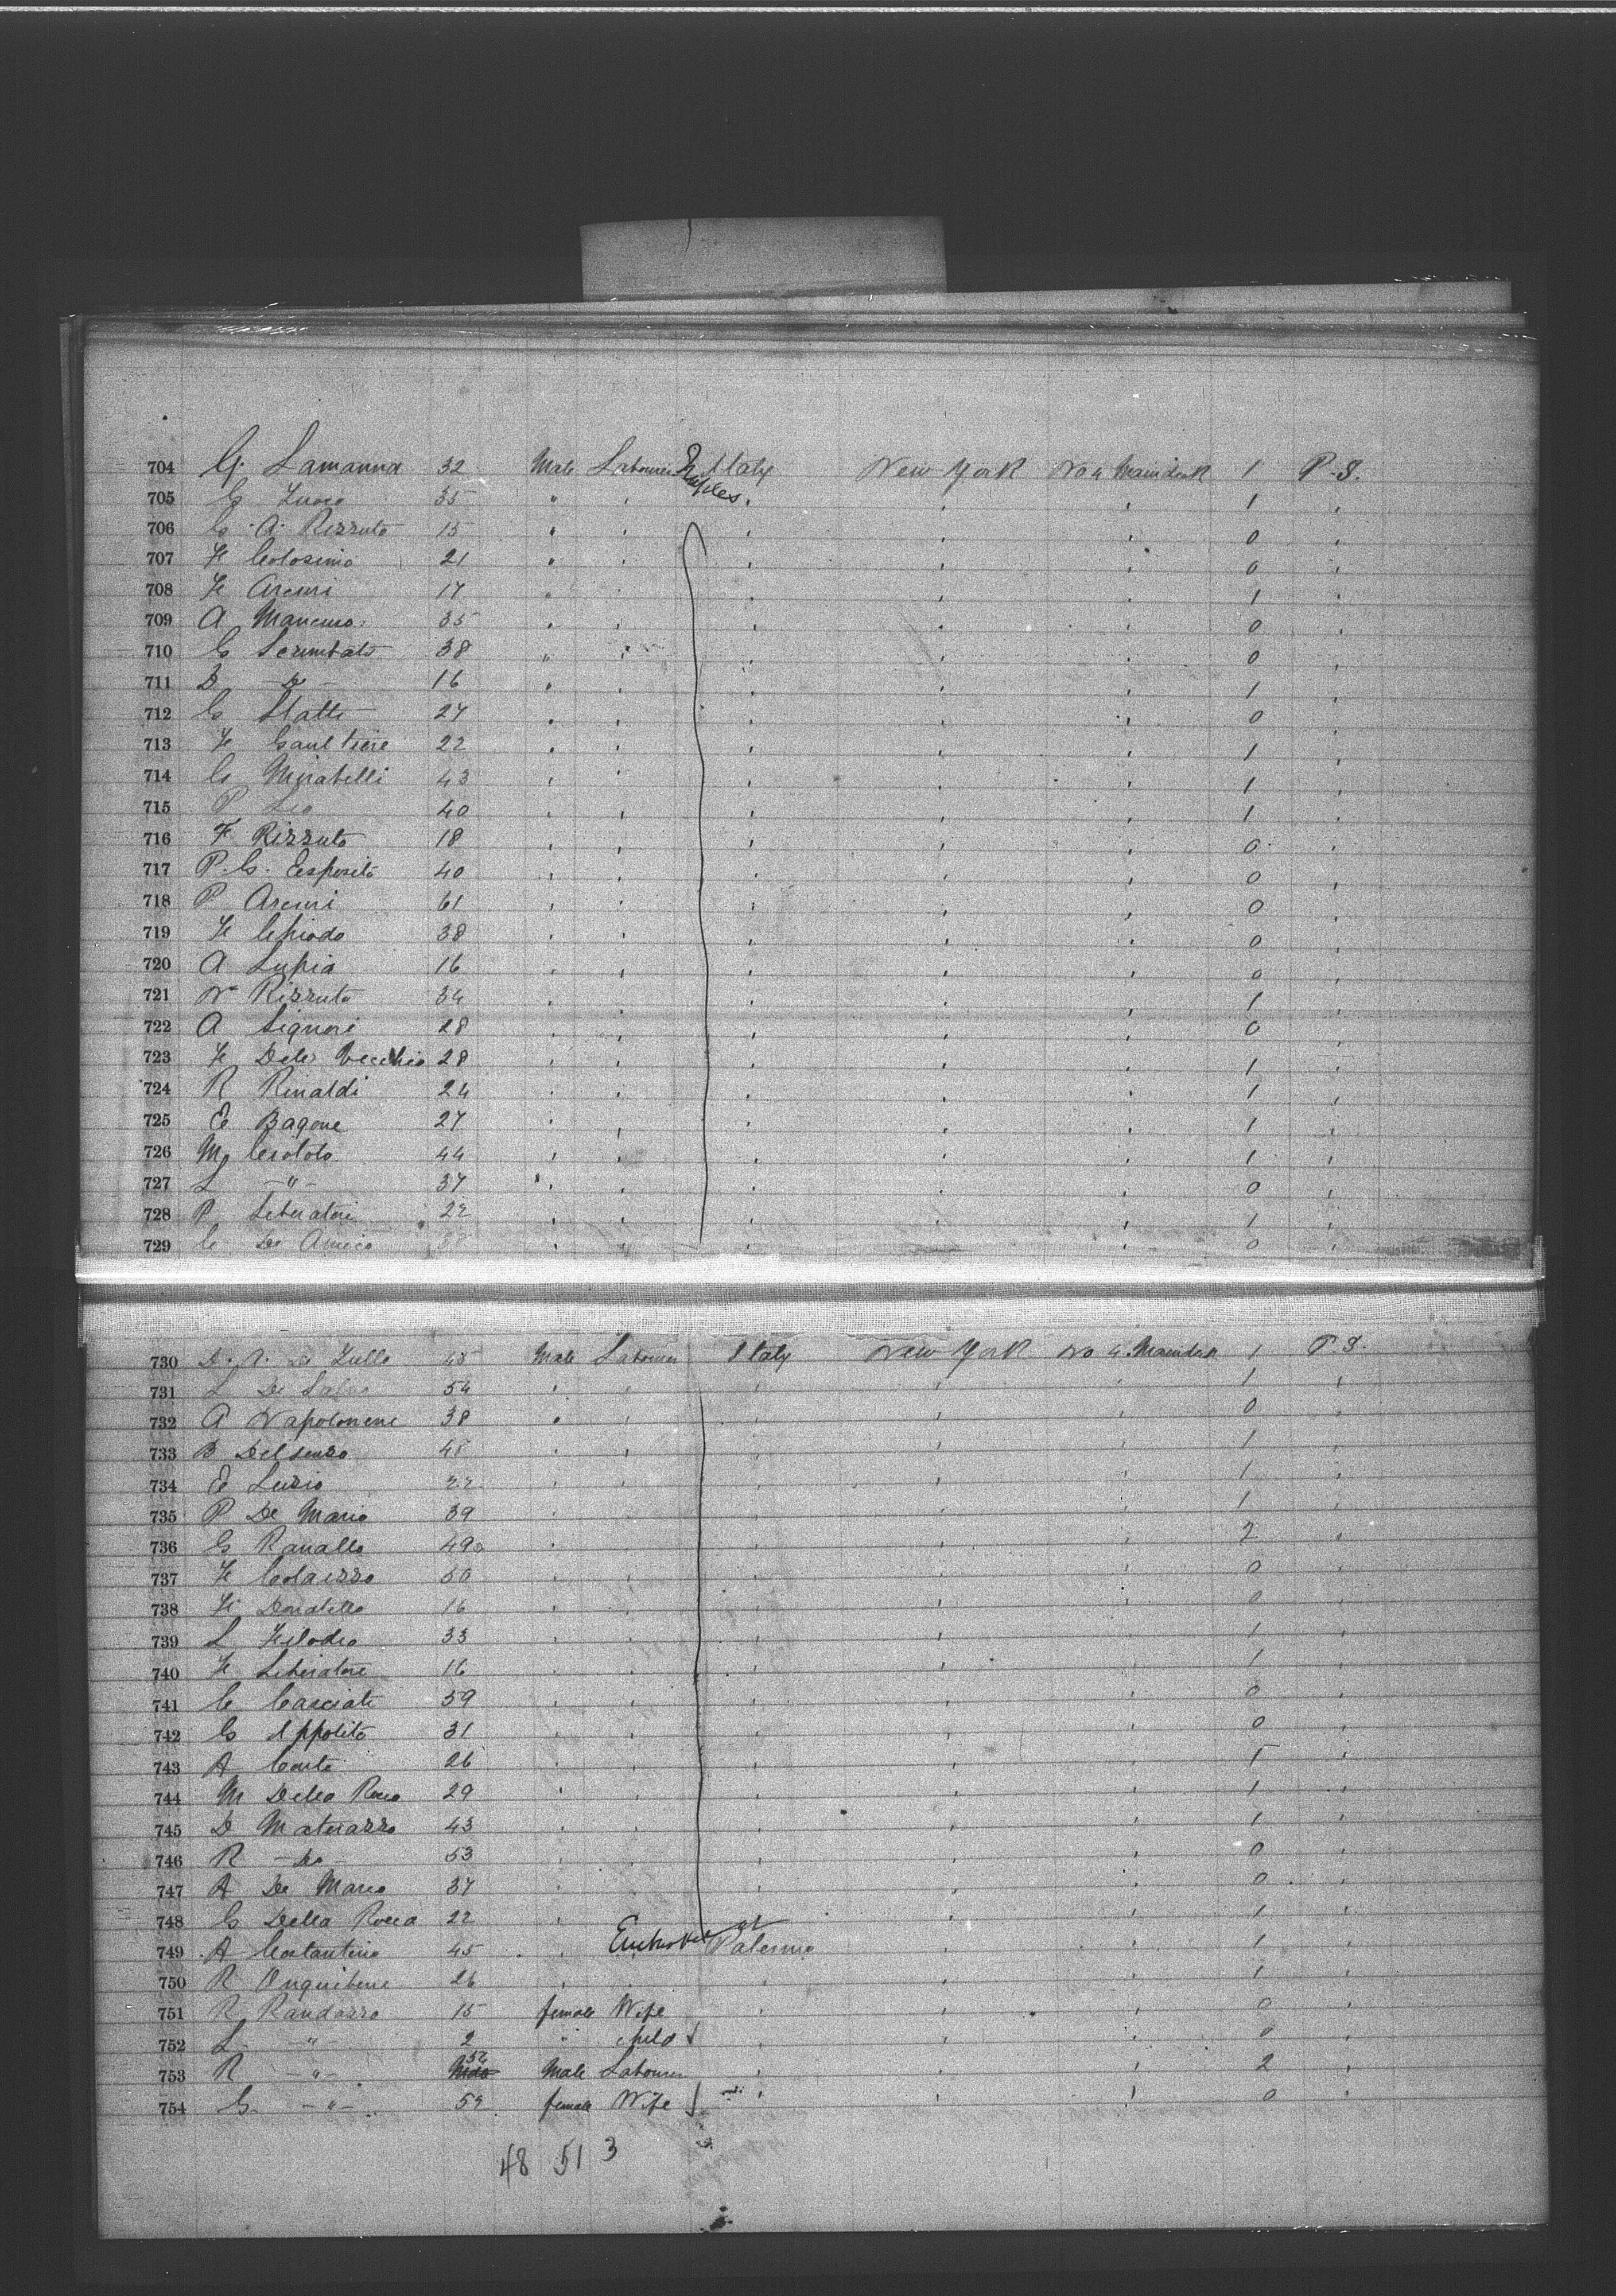 704 G. Lamanna 32 Male Labourer Naples Italy New York No 4 Maindeck 1 P.S.
705 G 35 " " " " " 1 "
706 G. A. Rizzuto 15 " " " " " 0 "
707 F Colosimo 21 " " " " " 0 "
708 F Arcuri 17 " " " " " 1 "
709 A Mancuso 35 " " " " " 0 "
710 G Scumbato 38 " " " " " 0 "
711 D - Do - 16 " " " " " 1 "
712 G Statti 27 " " " " " 0 "
713 F Gaultiere 22 " " " " " 1 "
714 G Mirabelli 43 " " " " " 1 "
715 P Leo 40 " " " " " 1 "
716 F Rizzuto 18 " " " " " 0 "
717 P. G. Esposito 40 " " " " " 0 "
718 P Arcuri 61 " " " " " 0 "
719 F 38 " " " " " 0 "
720 A Lupia 16 " " " " " 0 "
721 N Rizzuto 34 " " " " " 1 "
722 A Signore 28 " " " " " 0 "
723 F Del Vecchio 28 " " " " " 1 "
724 R Rinaldi 24 " " " " " 1 "
725 E Bagone 27 " " " " " 1 "
726 M 44 " " " " " 1 "
727 L - " - 37 " " " " " 0 "
728 P Liberatore 22 " " " " " 1 "
729 C De Amico " " " " 0 "
730 D. A. De Lullo 45 Male Labourer Italy New York No 4 Maindeck 1 P.S.
731 L De 54 " " " " " 1 "
732 A Napolonene 38 " " " " " 0 "
733 B 48 " " " " " 1 "
734 E Luzio 22 " " " " " 1 "
735 P De Mario 39 " " " " " 1 "
736 G Ranallo 49 " " " " " 2 "
737 F Colaizzo 50 " " " " " 0 "
738 F Donatello 16 " " " " " 0 "
739 L 33 " " " " " 1 "
740 F Liberatore 16 " " " " " 1 "
741 C Casciati 59 " " " " " 0 "
742 G Ippolito 31 " " " " " 0 "
743 A Conte 26 " " " " " 1 "
744 M Della Rocca 29 " " " " " 1 "
745 D Materazzo 43 " " " " " 1 "
746 R - Do - 53 " " " " " 0 "
747 A De Marco 37 " " " " " 0 "
748 G Della Rocca 22 " " " " 1 "
749 A Costantino 45 " " Embarked at Palermo " " 1 "
750 R 26 " " " " " 1 "
751 R Randazzo 15 female Wife " " " 0 "
752 L - " - 2 " child " " " 0 "
753 R - " - 52 Male Labourer " " " 2 "
754 G - " - 52 female Wife " " " 0 "
48 51 3